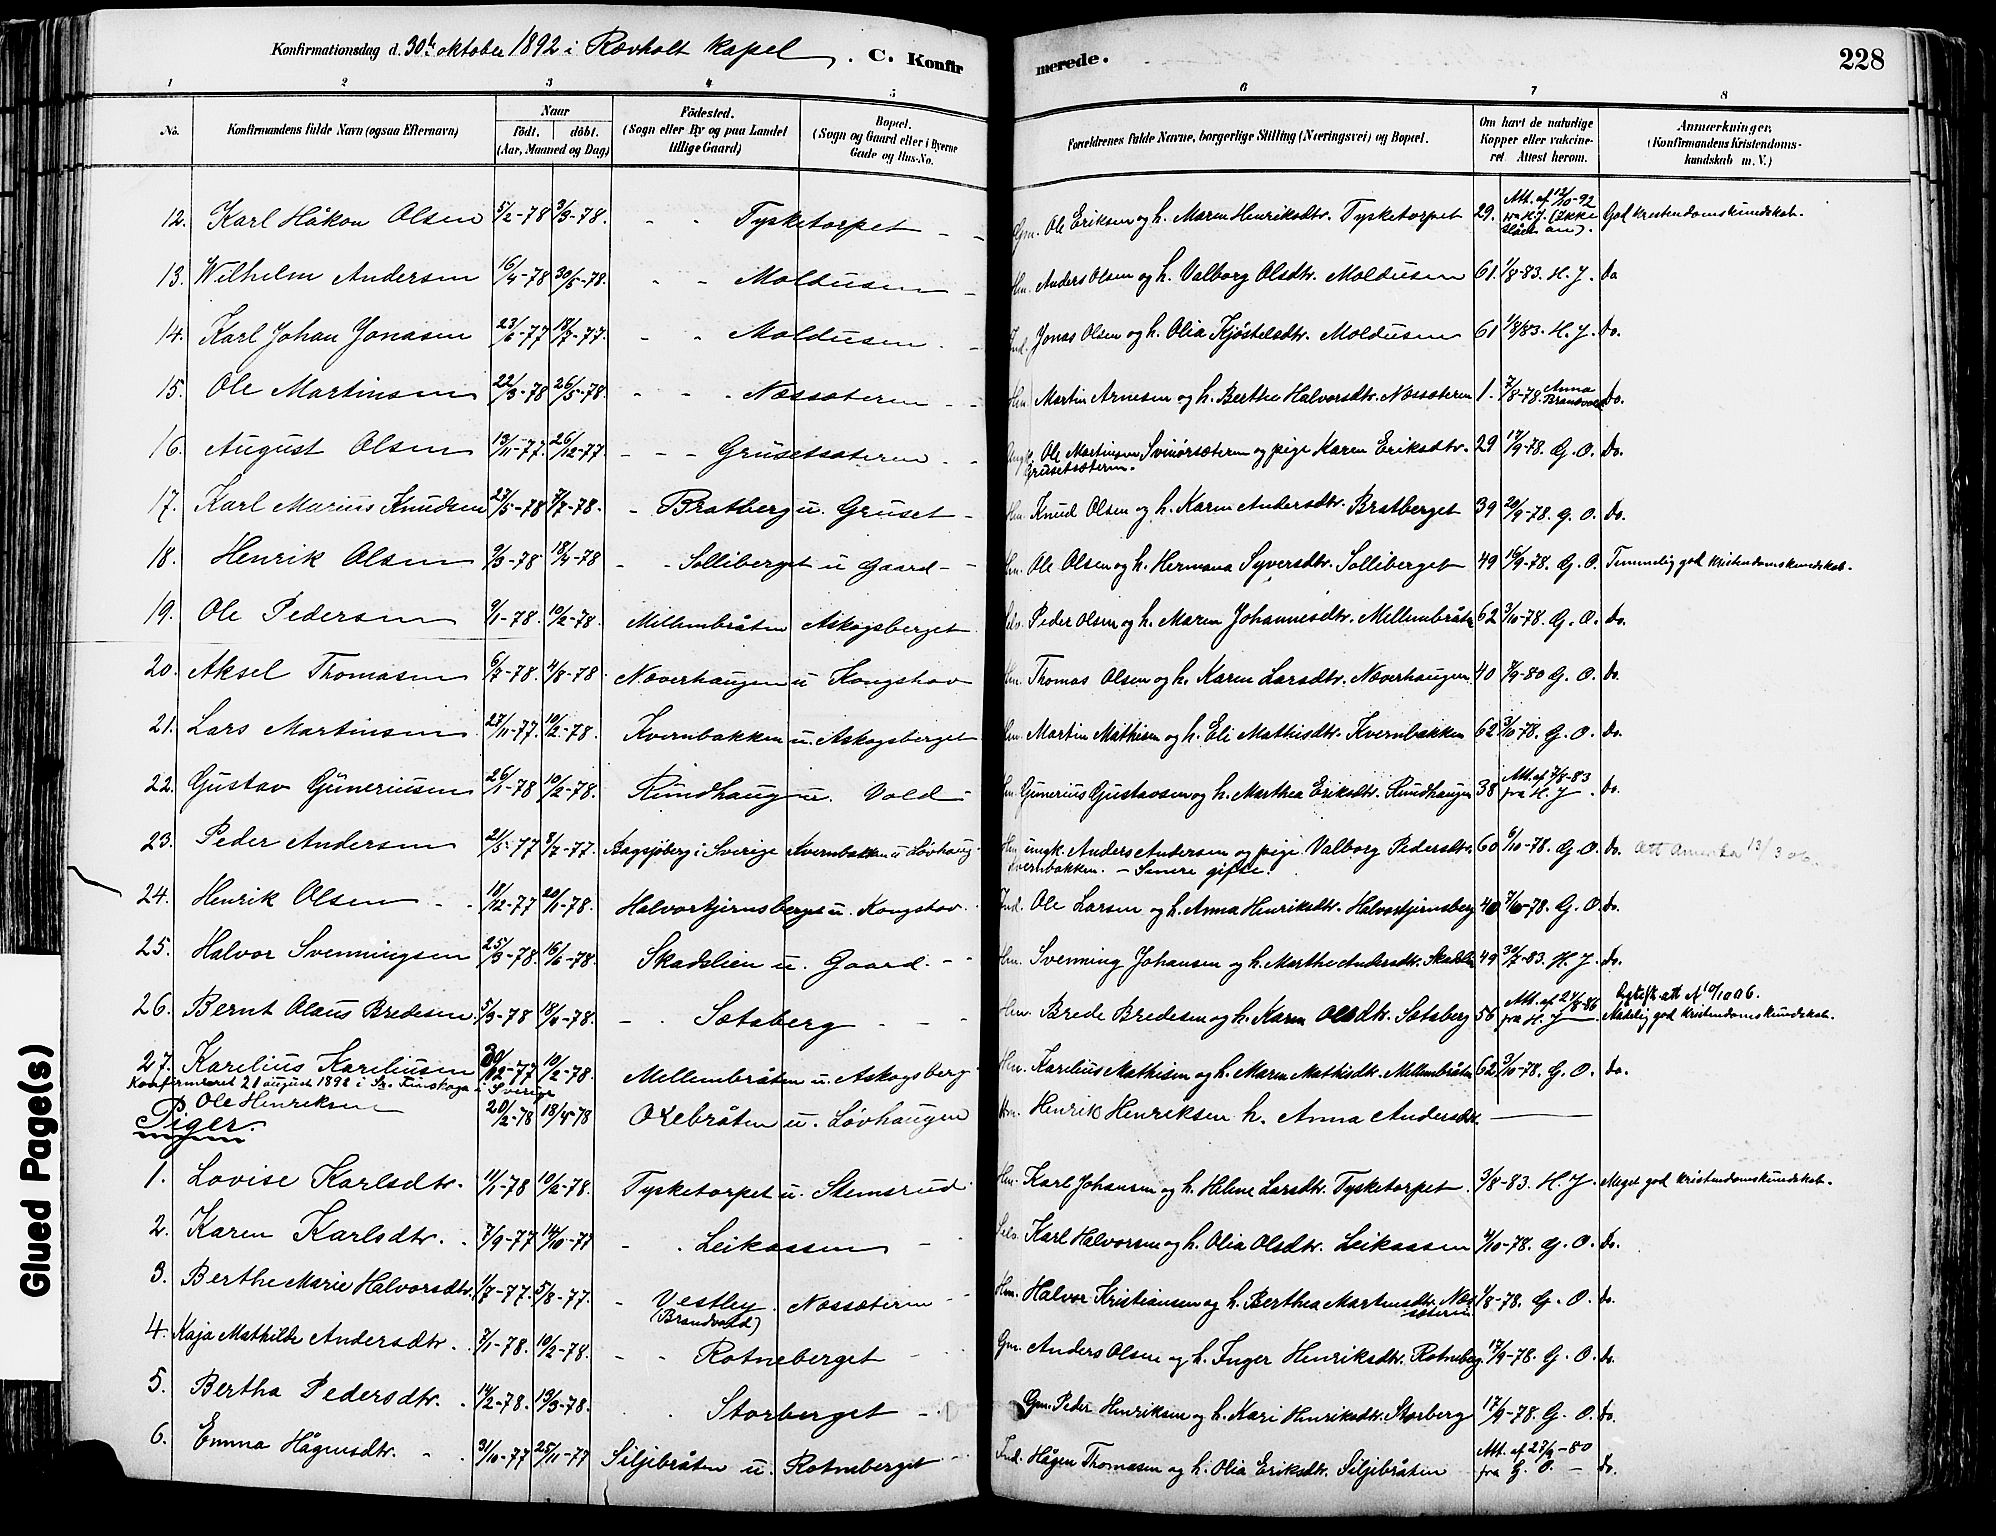 Konfirmationsdag d. 30te oktober 1892 i Rævholt kapel. C. Konfirmerede. 228
1 2 3 4 5 6 7 8
No. Konfirmandens fulde Navn (ogsaa Efternavn) Naar födt. döbt. (Aar, Maaned og Dag) Födested. (Sogn eller By og paa Landet tillige Gaard) Bopæl. (Sogn og Gaard eller i Byerne Gade og Hus-No. Forældrenes fulde Navne, borgerlige Stilling (Næringsvei) og Bopæl. Om havt de naturlige Kopper eller vakcineret Attest herom. Anmærkninger, (Konfirmandens Kristendomskundskab m. V.)
12. Karl Håkon Olsen 5/2-78 3/3-78. - - Tysketorpet - - Gm. Ole Eriksen og h. Maren Henriksdtr. Tysketorpet 29. Att. af 12/10-92 H. J. (Ikke slået an). God kristendomskundskab.
13. Wilhelm Andersen 16/4-78 30/5-78. - - Moldusen - Hm. Anders Olsen og h. Valborg Olsdtr. Moldusen 61 1/8-83. H. J. Do
14. Karl Johan Jonasen 23/6-77 18/7-77. - - Moldusen - Ind. Jonas Olsen og h. Olia Kjöstelsdtr. Moldusen 61 1/8/83. H. J. Do.
15. Ole Martinsen 22/3-78 26/5-78. - - - Næssæteren - - Hm. Martin Arnesen og h. Berthe Halvorsdtr. Næssæteren 1. 7/8-78. Anna Brandvold Do.
16. August Olsen 13/11-77. 26/12-77 - - - Grusetsæteren - - Ungk. Ole Martinsen Svinörsæteren og pige Karen Eriksdtr. Grusetsæteren. 29 17/9-78. G. O. Do.
17. Karl Marius Knudsen 27/5-78 7/7-78. - Bratberg u. Gruset - Hm. Knud Olsen og h. Karen Andersdtr. Bratberget 39 20/9-78. G. O. Do.
18. Henrik Olsen 9/3-78 18/4-78 - - Solliberget u Gaard - - Hm. Ole Olsen og h. Hermana Syversdtr. Solliberget 49 16/9-78. G. O. Temmelig god kristendomskundskab.
19. Ole Pedersen 9/1-78. 10/2-78. Mellembråten Askogsberget Selv. Peder Olsen og h. Maren Johannesdtr. Mellembråten 62 3/10-78. G. O. Do.
20. Aksel Thomasen 6/7-78. 4/8-78. Næverhaugen u Kongshov Hm. Thomas Olsen og h. Karen Larsdtr. Næverhaugen 40 3/9-80 G. O. Do.
21. Lars Martinsen 27/11-77. 10/2-78. Kvernbakken u. Askogsberget Hm. Martin Mathisen og h. Eli Mathisdtr. Kvernbakken 62 3/10-78. G. O. Do.
22. Gustav Guneriusen 26/1-78 10/2-78. Rundhaug u. Vold - Hm. Gunerius Gustavsen og h. Marthea Eriksdtr. Rundhaugen 38 Att. af 7/8-83 fra H. J. Do.
23. Peder Andersen 21/5-77 8/7-77. Bagsjöberg i Sverige Kvernbakken u Lövhaug Hm ungk. Anders Andersen og pige Valborg Pedersdtr. Kvernbakken. - Senere gifte. 60 9/10-78. G. O. Do. Att Amerika 13/3 06.
24. Henrik Olsen - - 18/12-77 20/1-78. Halvortjernsberget u. Kongshov. Ind. Ole Larsen og h. Anna Henriksdtr. Halvortjernsberg 40 7/10-78. G. O. Do.
25. Halvor Svenningsen 25/3-78. 16/6-78. Skadelien u. Gaard. - - Hm. Svenning Johansen og h. Marthe Andersdtr. Skadelien 49 30/7-83. H. J. Do.
26. Bernt Olaus Bredesen 5/3-78 18/4-78. - - Sætaberg - - - Hm. Brede Bredesen og h. Karen Olsdtr. Sætaberg 56 Att. af 24/8-86 fra H. J. Lysts.att N 10/10 06. Nådelig god kristendomskundskab.
27. Karelius Kareliusen 30/12-77 10/2-78. Mellembråten u. Askogsberg Hm. Karelius Mathisen og h. Maren Mathisdtr. Mellembråten 62 3/10-78. G. O. Do.
Konfirmeret 21 august 1892 i Sö. Finskoga i Sverige
Ole Henriksen 20/2-78 18/4-78 Oxebråten u. Lövhaugen Hm. Henrik Henriksen h. Anna Andersdtr.
Piger.
1. Lovise Karlsdtr. 11/1-78 10/2-78. Tysketorpet u. Stemsrud Hm. Karl Johansen og h. Helene Larsdtr. Tysketorpet. 3/8-83. H. J. Meget god kristendomskundskab.
2. Karen Karlsdtr. 7/9-77 14/10-77 - - Leikaasen - - Selv. Karl Halvorsen og h. Olia Olsdtr. Leikaasen 4/10-78. G. O. Do.
3. Berthe Marie Halvorsdtr. 1/7-77. 5/8-77. - Vestby (Brandvold) Næssæteren - - Hm. Halvor Kristiansen og h. Berthea Martinsdtr. Næssæteren 1/8-78. G. O. Do.
4. Kaja Mathilde Andersdtr. 7/1-78. 10/2-78. - - Rotneberget - Gm. Anders Olsen og h. Inger Henriksdtr. Rotneberg 17/9-78. G. O. Do.
5. Bertha Pedersdtr. 14/2-78. 19/3-78. - Storberget - - Gm. Peder Henriksen og h. Kari Henriksdtr. Storberg 17/9-78. G. O. Do.
6. Emma Hågensdtr. - 31/10-77 25/11-77 Siljebråten u. Rotneberget - Ind. Hågen Thomasen og h. Olia Eriksdtr. Siljebråten Att. af 27/9-80 fra G. O. - Do.
Glued Page(s)